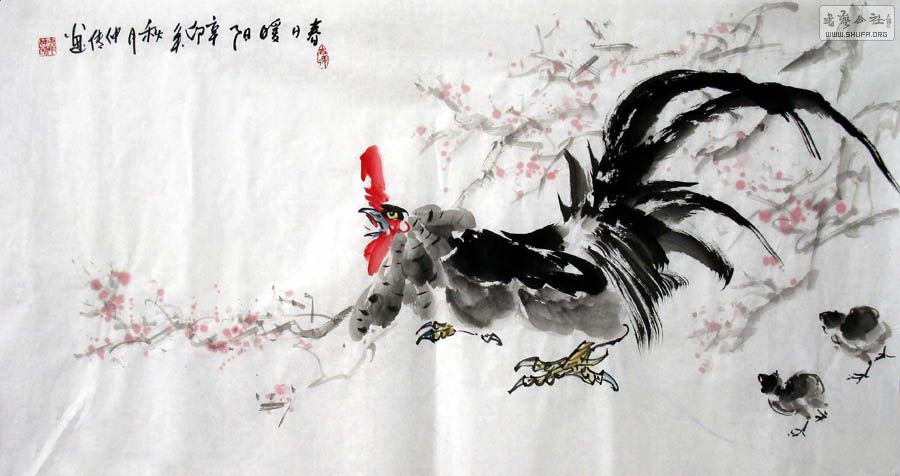 春日暖阳辛卯年秋月仲
书艺公社
WWW.SHUFA.ORG